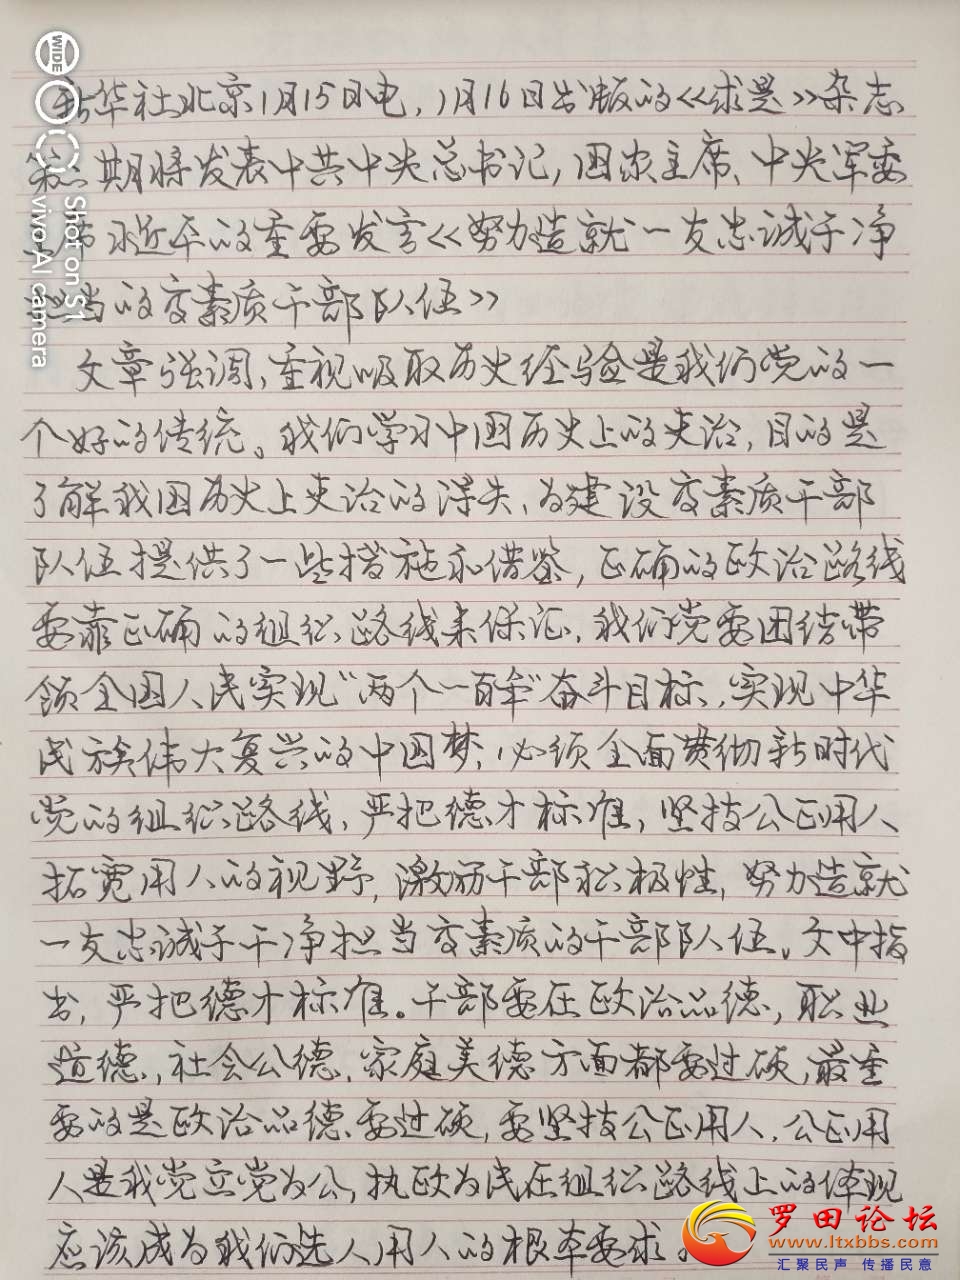 新华社北京1月15日电，1月16日出版的《求是》杂志
第二期将发表中共中央总书记，国家主席、中央军委
主席习近平的重要发言《努力造就一支忠诚干净
担当的高素质干部队伍》
文章强调，重视吸取历史经验是我们党的一
个好的传统。我们学习中国历史上的吏治，目的是
了解我国历史上吏治的得失、为建设高素质干部
队伍提供了一些措施和借鉴，正确的政治路线
要靠正确的组织路线来保证，我们党要团结带
领全国人民实现"两个一百年"奋斗目标，实现中华
民族伟大复兴的中国梦，必须全面贯彻新时代
党的组织路线，严把德才标准，坚持公正用人
拓宽用人的视野，激励干部积极性，努力造就
一支忠诚于干净担当高素质的干部队伍。文中指
出，严把德才标准。干部要在政治品德，职业
道德，社会公德，家庭美德方面都要过硬，最重
要的是政治品德要过硬，要坚持公正用人，公正用
人是我党立党为公，执政为民在组织路线上的体现
应该成为我们选人用人的根本要求。
WIDE
Shot on S1
vivo AI camera
罗田论坛
www.ltxbbs.com
汇聚民声 传播民意